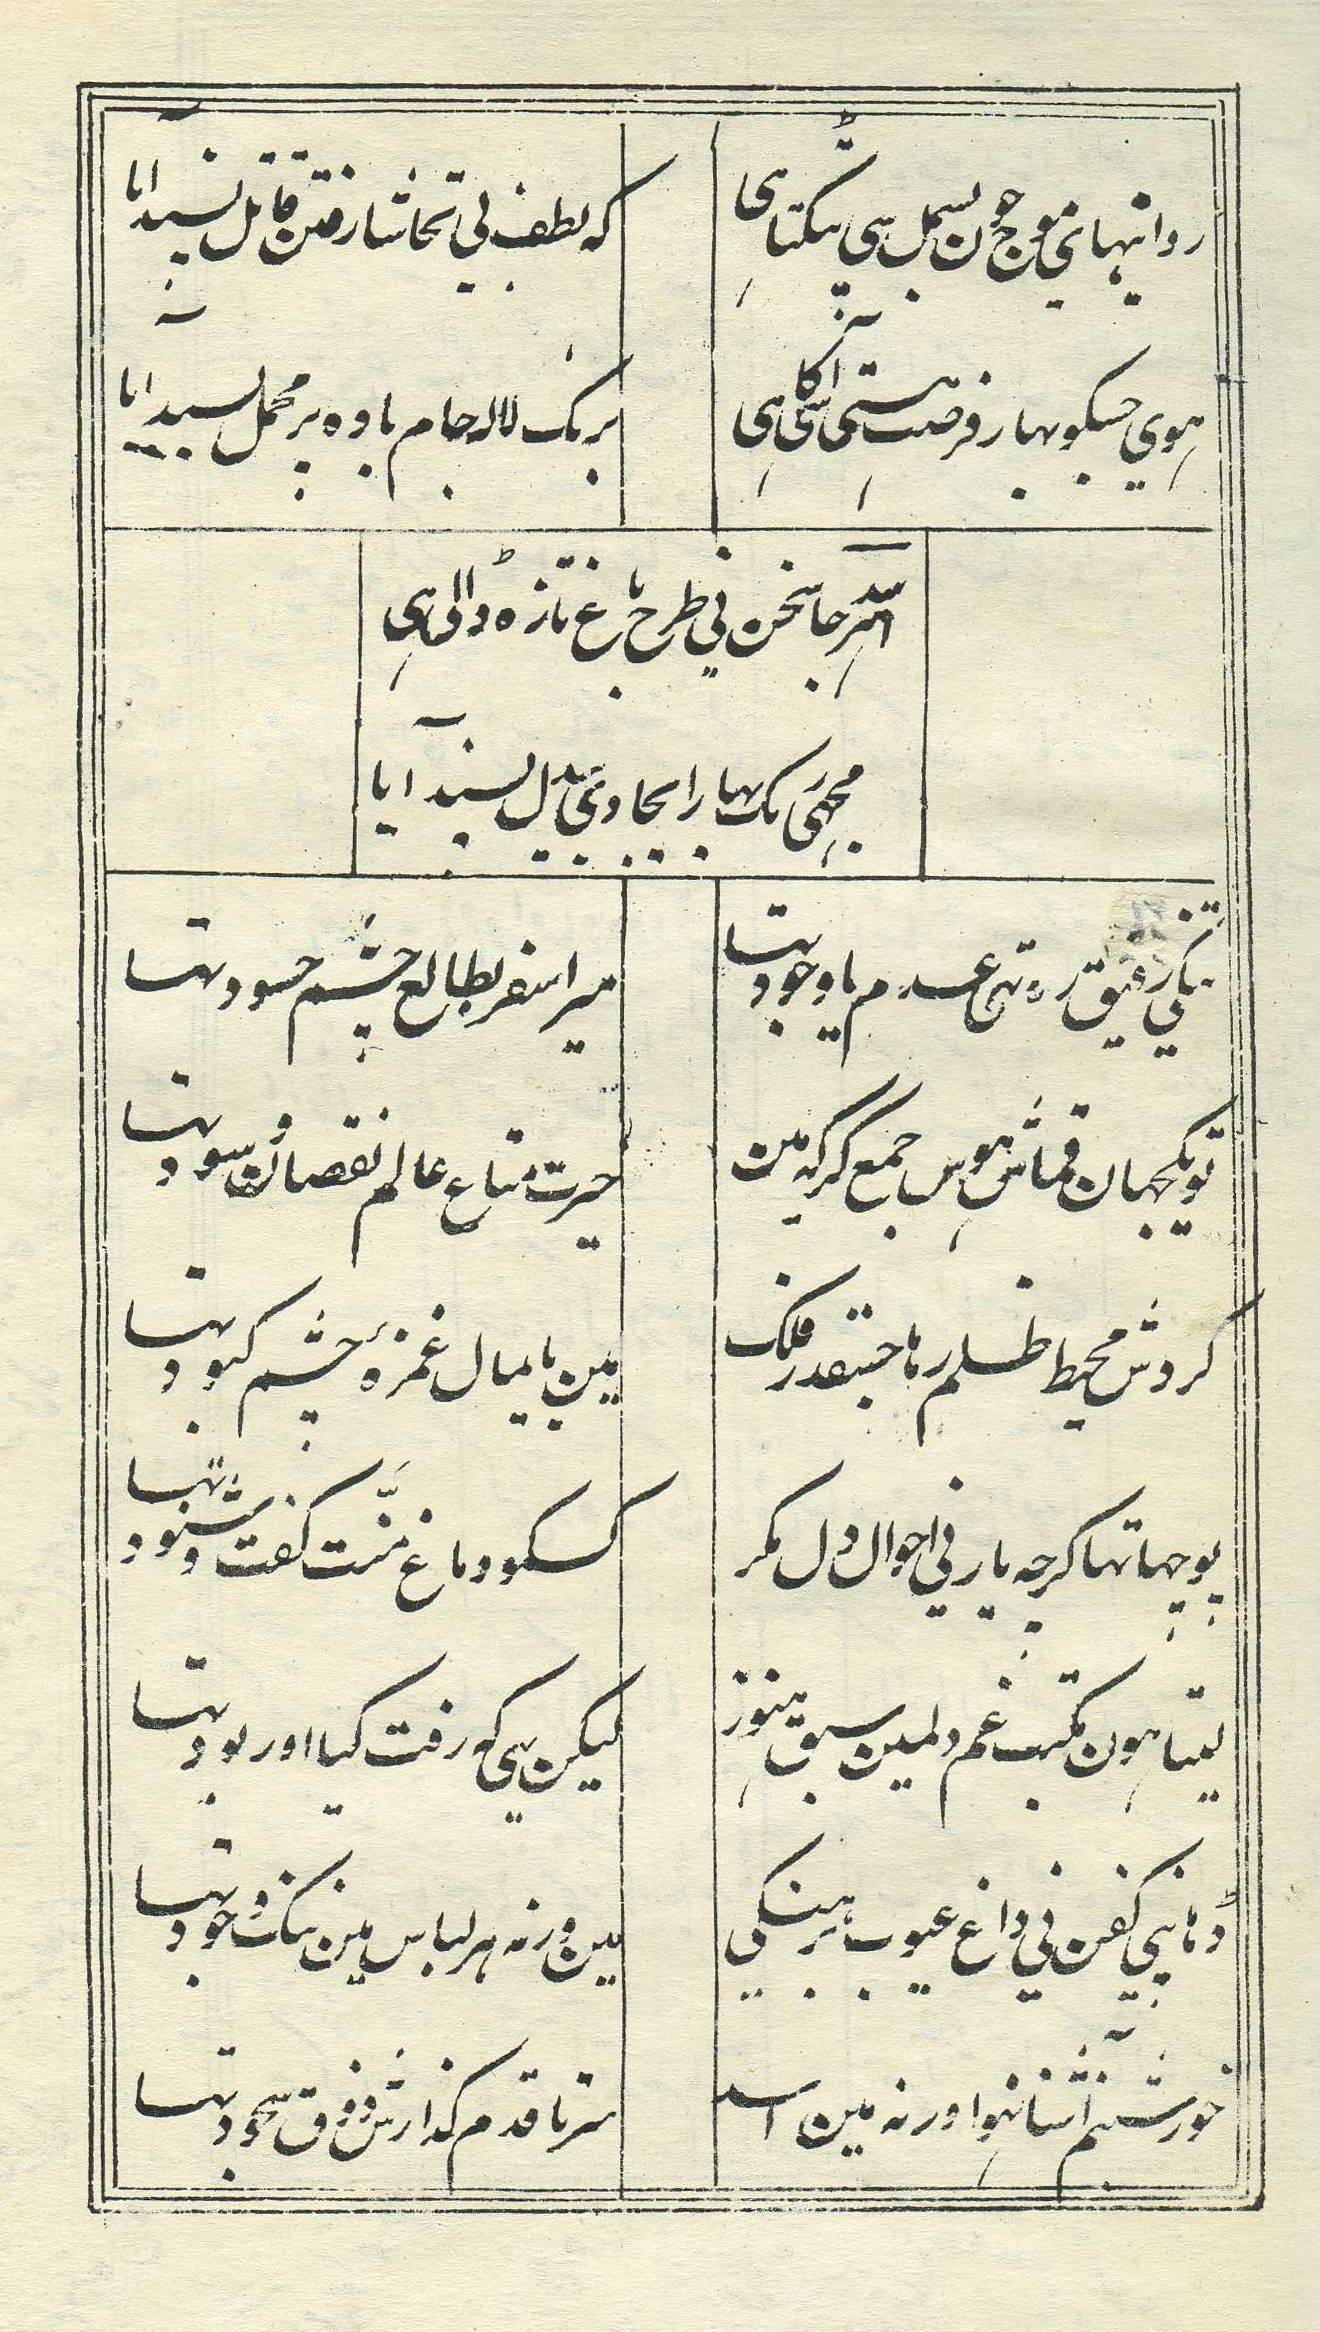 روانیہای موج خون بسمل سی ٹپکتا ہی
کہ لطف بی تحاشا رفتن قاتل پسند آیا
ہوئی جسکو بہار فرصت ہستی سی آگاہی
برنگ لالہ جام بادہ بر محمل پسند آیا
اسد ہر جا سخن نی طرح باغ تازہ ڈالی ہی
مجھی رنگ بہار ایجادی بیدل پسند آیا
تنگی رفیق رہ تہی عدم یا وجود تہا
میرا سفر بطالع چشم حسود تہا
تو یکجہان قماش ہوس جمع کر کہ مین
حیرت متاع عالم نقصان و سود تہا
گردش محیط ظلم رہا جسقدر فلک
مین پایمال غمزۂ چشم کبود تہا
پوچہا تہا گرچہ یار نی احوال دل مگر
کسکو دماغ منّت گفت و شنود تہا
لیتا ہون مکتب غم دلمین سبق ہنوز
لیکن یہی کہ رفت گیا اور بود تہا
ڈہانپی کفن نی داغ عیوب برہنگی
مین ورنہ ہر لباس مین ننگ وجود تہا
خور شبنم آشنا نہوا ورنہ مین اسد
سر تا قدم گذارش ذوق سجود تہا